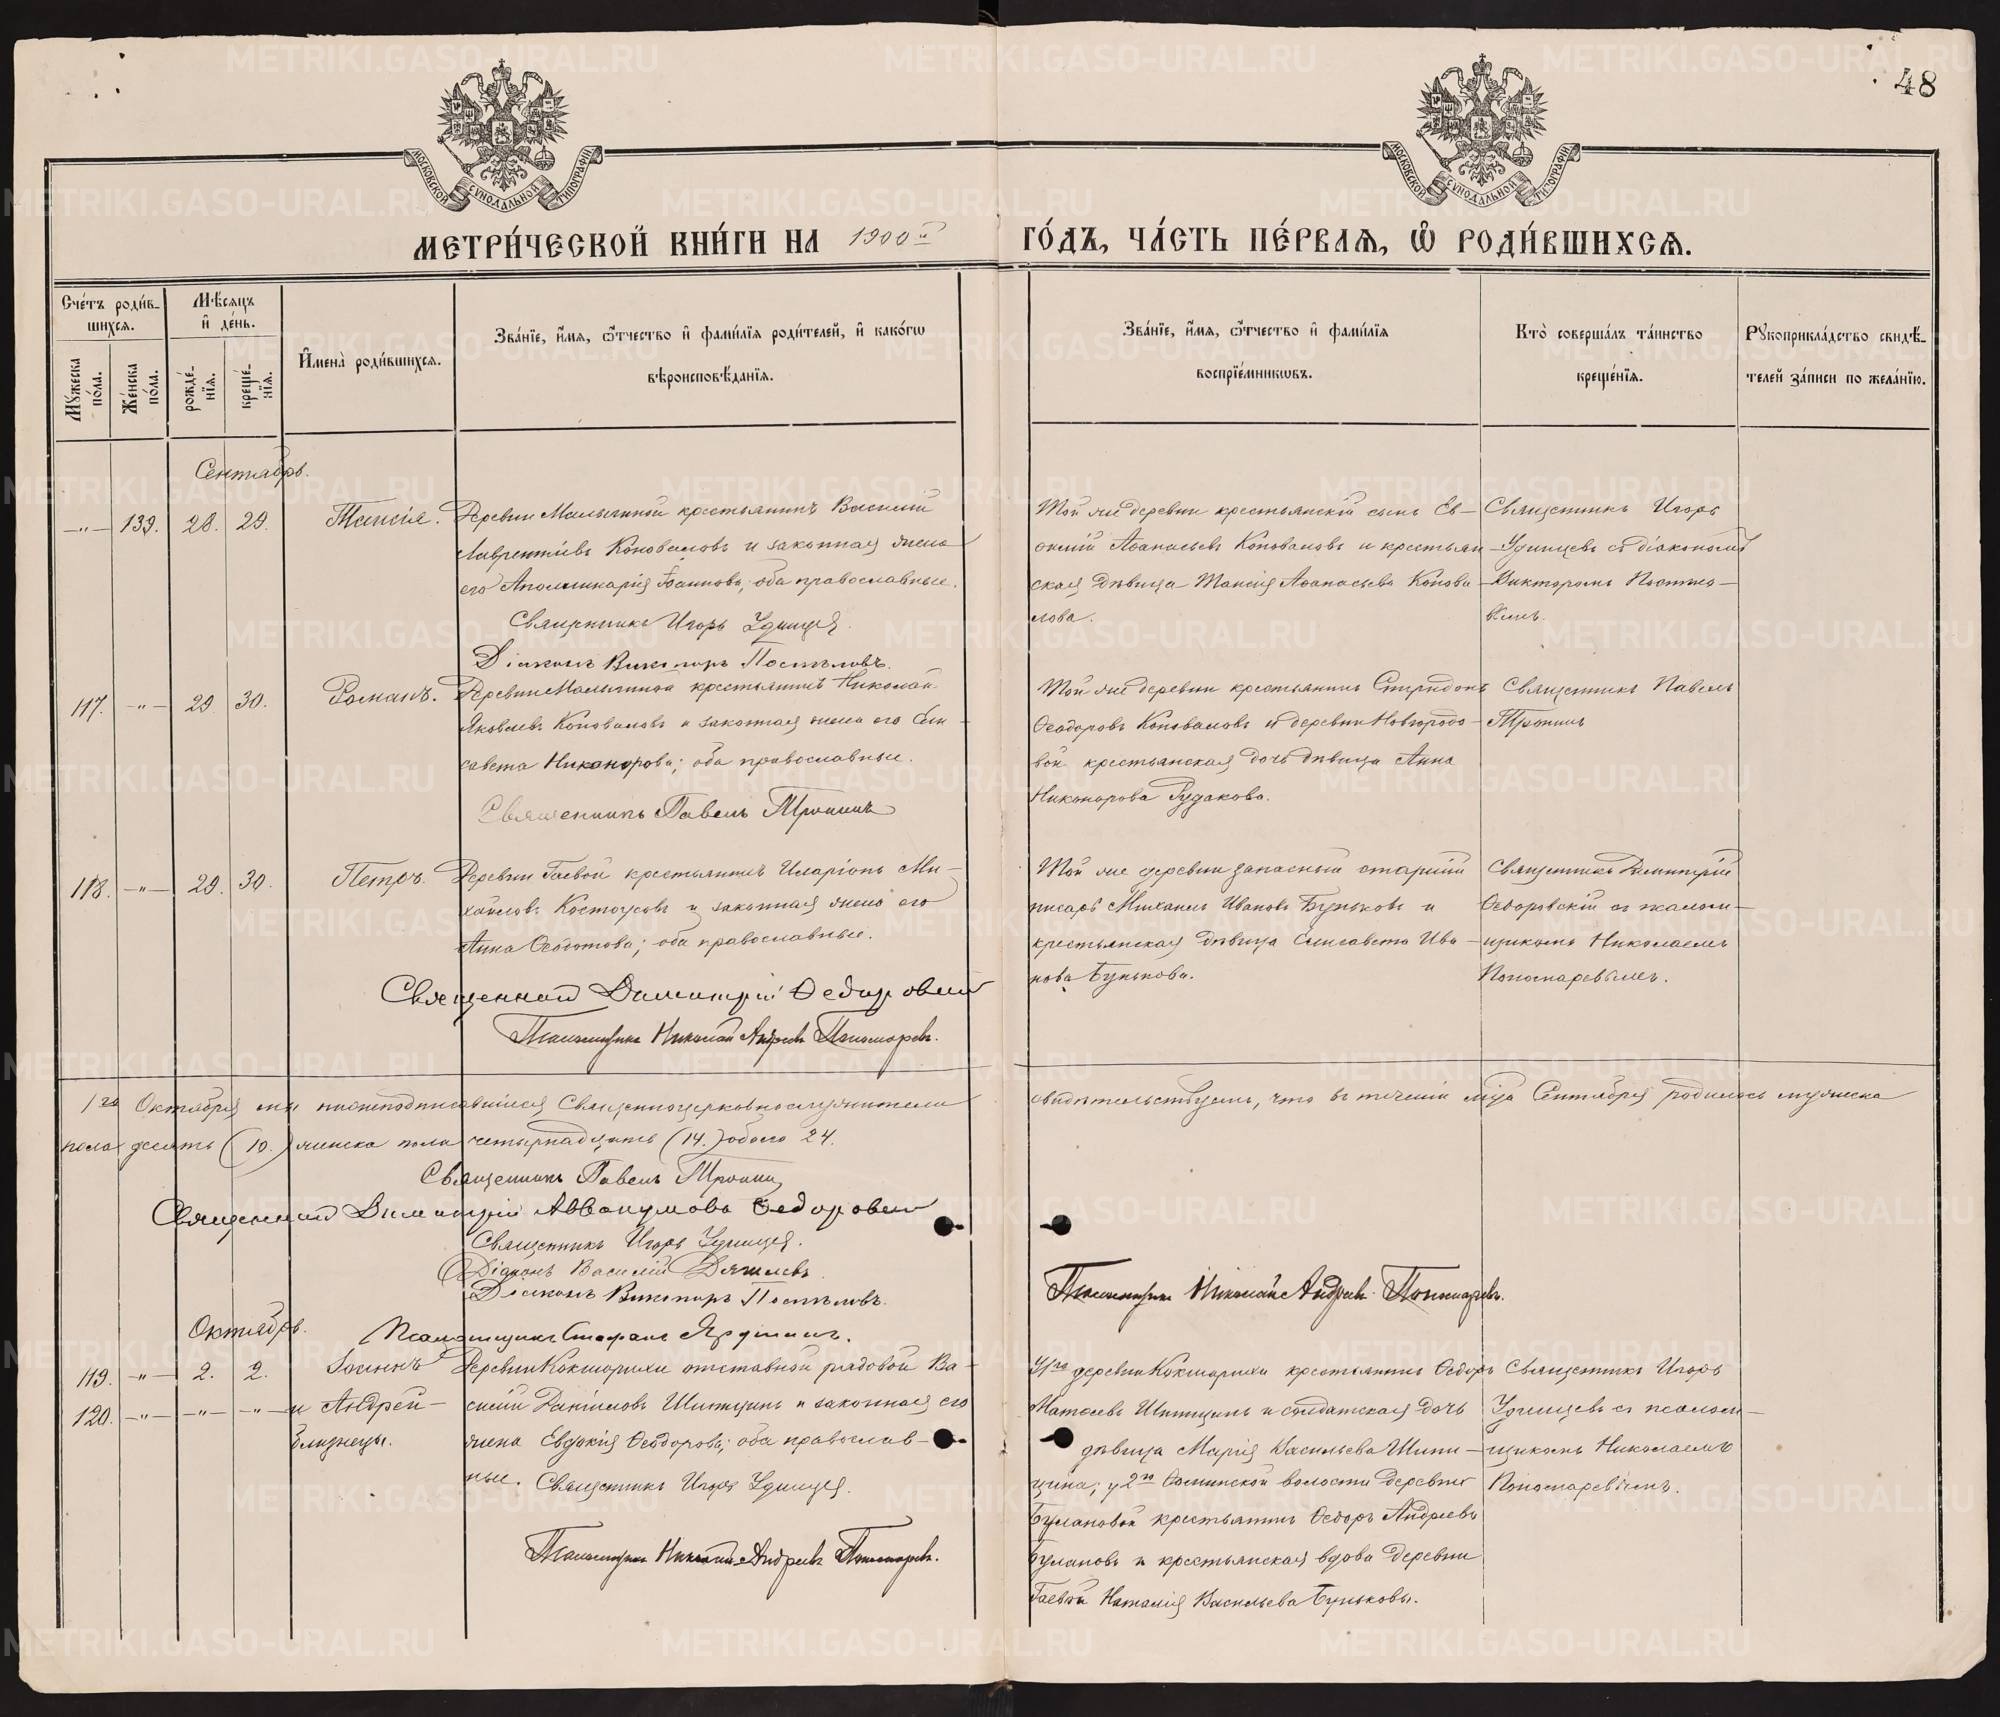 48
МОСКОВСКОЙ СУНОДАЛЬНОЙ ТИПОГРАФІИ
МОСКОВСКОЙ СУНОДАЛЬНОЙ ТИПОГРАФІИ
МЕТРИ́ЧЕСКОЙ КНИ́ГИ НА 1900 й ГО́ДЪ, ЧА́СТЬ ПЕ́РВАЯ, Ѡ РОДИ́ВШИХСЯ.
Сче́тъ роди́в-
шихся.
Мѣ́сяцъ
и҆ де́нь.
Му́жеска по́ла.
Же́нска по́ла.
рожде́-
нїя.
креще́-
нїя.
И҆мена̀ роди́вшихся.
Зва́нїе, и҆́мя, ѻ҆́тчество и҆ фами́лїя роди́телей, и҆ како́гѡ
вѣроисповѣ́данїя.
Зва́нїе, и҆́мя, ѻ҆́тчество и҆ фами́лїя
воспрїе́мникѡвъ.
Кто̀ соверша́лъ та́инство
креще́нїя.
Рукоприкла́дство свидѣ́-
телей за́писи по жела́нїю.
Сентябрь.
—"— 139. 28. 29. Таисія. Деревни Малыгиной крестьянинъ Василій
Лаврентіевъ Коноваловъ и законная жена
его Аполлинарія Іоаннова; оба православные.
Священникъ Игорь Удинцев.
Діаконъ Викторъ Постъловъ.
Той же деревни крестьянскій сынъ Ев-
Афанасьевъ Коноваловъ и крестьян
ская дѣвица Таисія Афанасьева Конова
лова.
Священникъ Игорь
Удинцевъ съ діакономъ
Викторомъ
117. —"— 29 30. Романъ. Деревни Малыгиной крестьянинъ Николай
Яковлевъ Коноваловъ и законная жена его Ели-
савета Никонорова; оба православные.
Священникъ Павелъ Тронинъ
Той же деревни крестьянинъ Спиридонъ
Ѳеодоровъ Коноваловъ и деревни Новгородо-
вой крестьянская дочь дѣвица Анна
Никонорова Рудакова.
Священникъ Павелъ
Тронинъ
118. —"— 29. 30. Петръ. Деревни Гаевой крестьянинъ Иларіонъ Ми-
хайловъ Костоусовъ и законная жена его
Анна Ѳеодотова; оба православные.
Священникъ Димитрій Ѳедоровскій
Псаломщикъ Николай Андреевъ Пономаревъ.
Той же деревни запасный старшій
писарь Михаилъ Ивановъ Буньковъ и
крестьянская дѣвица Елисавета Ива-
нова Бунькова.
Священникъ Димитрій
Ѳедоровскій съ псалом-
щикомъ Николаемъ
Пономаревымъ.
1го Октября мы нижеподписавшіеся Священноцерковнослужители свидѣтельствуемъ, что въ теченіи м-ца Сентября родилось мужеска
пола десять (10.) женска пола четырнадцать (14.) обоего 24.
Священникъ Павелъ Тронинъ
Священникъ Димитрій Аввакумовъ Ѳедоровскій
Священникъ Игорь Удинцев.
Діаконъ Василій
Діаконъ Викторъ Постъловъ.
Псаломщикъ Николай Андреевъ Пономаревъ.
Псаломщикъ Стефанъ Ярушинъ.
Октябрь.
119. —"— 2. 2. Іоаннъ Деревни Кокшарихи отставной рядовой Ва-
120. —"— —"— —"— и Андрей силій Даниловъ Шипицынъ и законная его
близнецы. жена Евдокія Ѳеодорова; оба православ-
ные. Священникъ Игорь Удинцев.
Псаломщикъ Николай Андреевъ Пономаревъ.
У 1го деревни Кокшарихи крестьянинъ Ѳедоръ
Матѳеевъ Шипицынъ и солдатская дочь
дѣвица Марія Васильева Шипи-
цина; у 2го волости деревни
Булановой крестьянинъ Ѳедоръ Андреевъ
Булановъ и крестьянская вдова деревни
Гаевой Наталія Васильева Бунькова.
Священникъ Игорь
Удинцевъ съ псалом-
щикомъ Николаемъ
Пономаревымъ.
METRIKI.GASO-URAL.RU